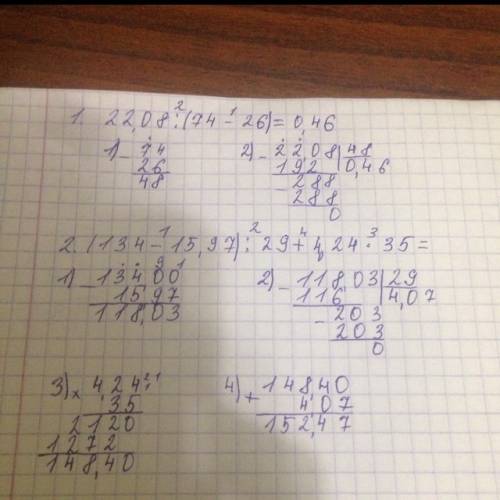 1. 22,08 : (74 - 26) = 0,46
2 1
1) - 74
26
48
2) - 22,08 | 48
192 0,46
- 288
288
0
2. (134 - 15,97) : 29 + 4,24 · 35 =
1 2 4 3
1) - 134 00
9 1
15 97
118,03
2) - 118,03 | 29
116 4,07
- 203
203
0
3) x 4,24
2 1
35
2120
1272
148,40
4) + 148,40
4 07
152,47